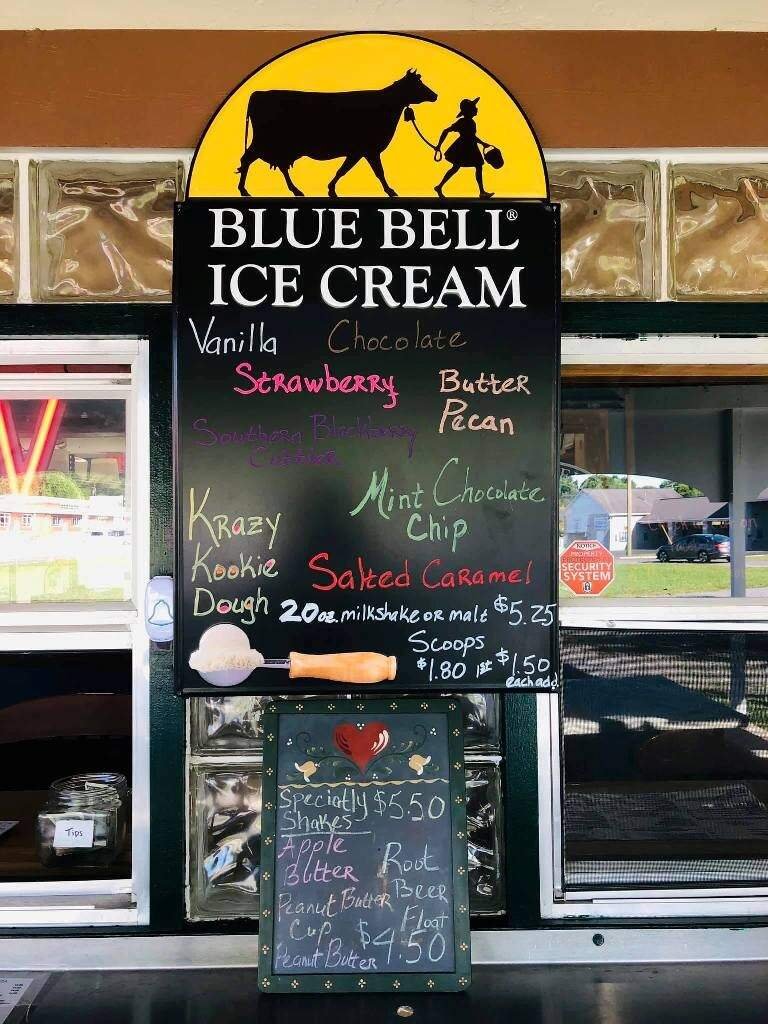 BLUE BELL®
ICE CREAM
Vanilla Chocolate
Strawberry
Butter
Pecan
Southern Blackberry
Cobbler
Mint Chocolate
Chip
Krazy
Kookie
Dough
Salted Caramel
20oz. milkshake or malt $5.25
Scoops
$1.80 1st $1.50
each add.
PROPERTY
SECURITY
SYSTEM
Tips
Specialty $5.50
Shakes
Apple
Butter
Peanut Butter
Cup
Peanut Butter
Root
Beer
Float
$4.50